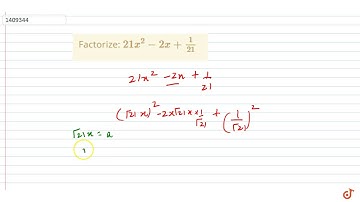 1409344
Factorize: 21x² − 2x + 1/21
21x² − 2x + 1/21
(√21 x)² − 2x√21 x × 1/√21 + (1/√21)²
√21 x = a